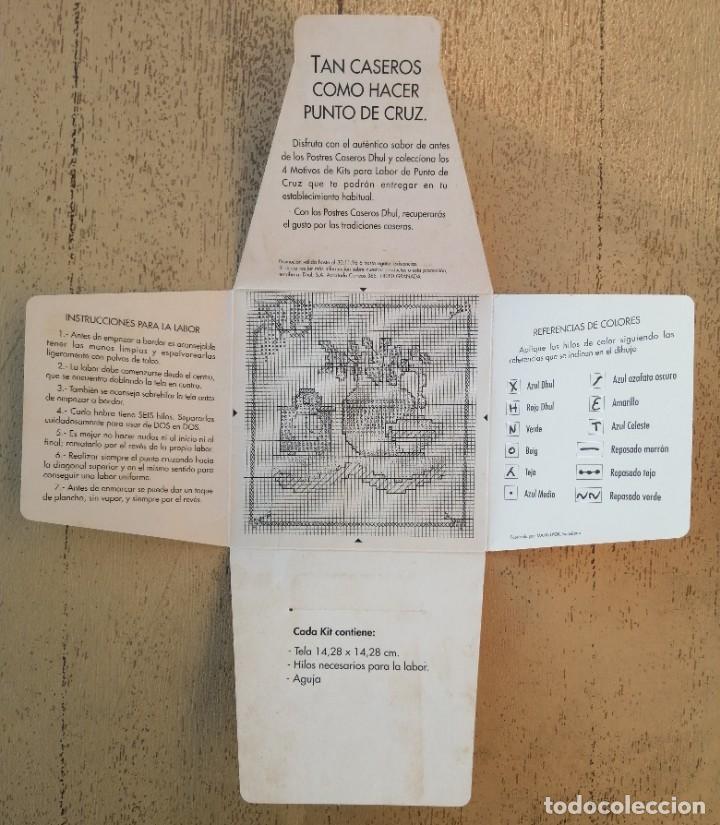 TAN CASEROS
COMO HACER
PUNTO DE CRUZ.
Disfruta con el auténtico sabor de antes
de los Postres Caseros Dhul y colecciona los
4 Motivos de Kits para Labor de Punto de
Cruz que te podrán entregar en tu
establecimiento habitual.
Con los Postres Caseros Dhul, recuperarás
el gusto por las tradiciones caseras.
Promoción válida hasta el
más información sobre nuestros productos o esta promoción,
Dhul, S.A. Apartado Correos GRANADA
INSTRUCCIONES PARA LA LABOR
1.- Antes de empezar a bordar es aconsejable
tener las manos limpias y espolvorearlas
ligeramente con polvos de talco.
2.- La labor debe comenzarse desde el centro,
que se encuentra doblando la tela en cuatro.
3.- También se aconseja sobrehilar la tela antes
de empezar a bordar.
4.- Cada hebra tiene SEIS hilos. Separarlos
cuidadosamente para usar de DOS en DOS.
5.- Es mejor no hacer nudos ni al inicio ni al
final; rematarlo por el revés de la propia labor.
6.- Realizar siempre el punto cruzando hacia
la diagonal superior y en el mismo sentido para
conseguir una labor uniforme.
7.- Antes de enmarcar se puede dar un toque
de plancha, sin vapor, y siempre por el revés.
REFERENCIAS DE COLORES
Aplique los hilos de color siguiendo las
referencias que se indican en el dibujo
X Azul Dhul
H Rojo Dhul
N Verde
O Beig
Teja
• Azul Medio
Azul azafata oscuro
Amarillo
T Azul Celeste
Repasado marrón
Repasado teja
Repasado verde
Cada Kit contiene:
- Tela 14,28 x 14,28 cm.
- Hilos necesarios para la labor.
- Aguja
todocoleccion.net